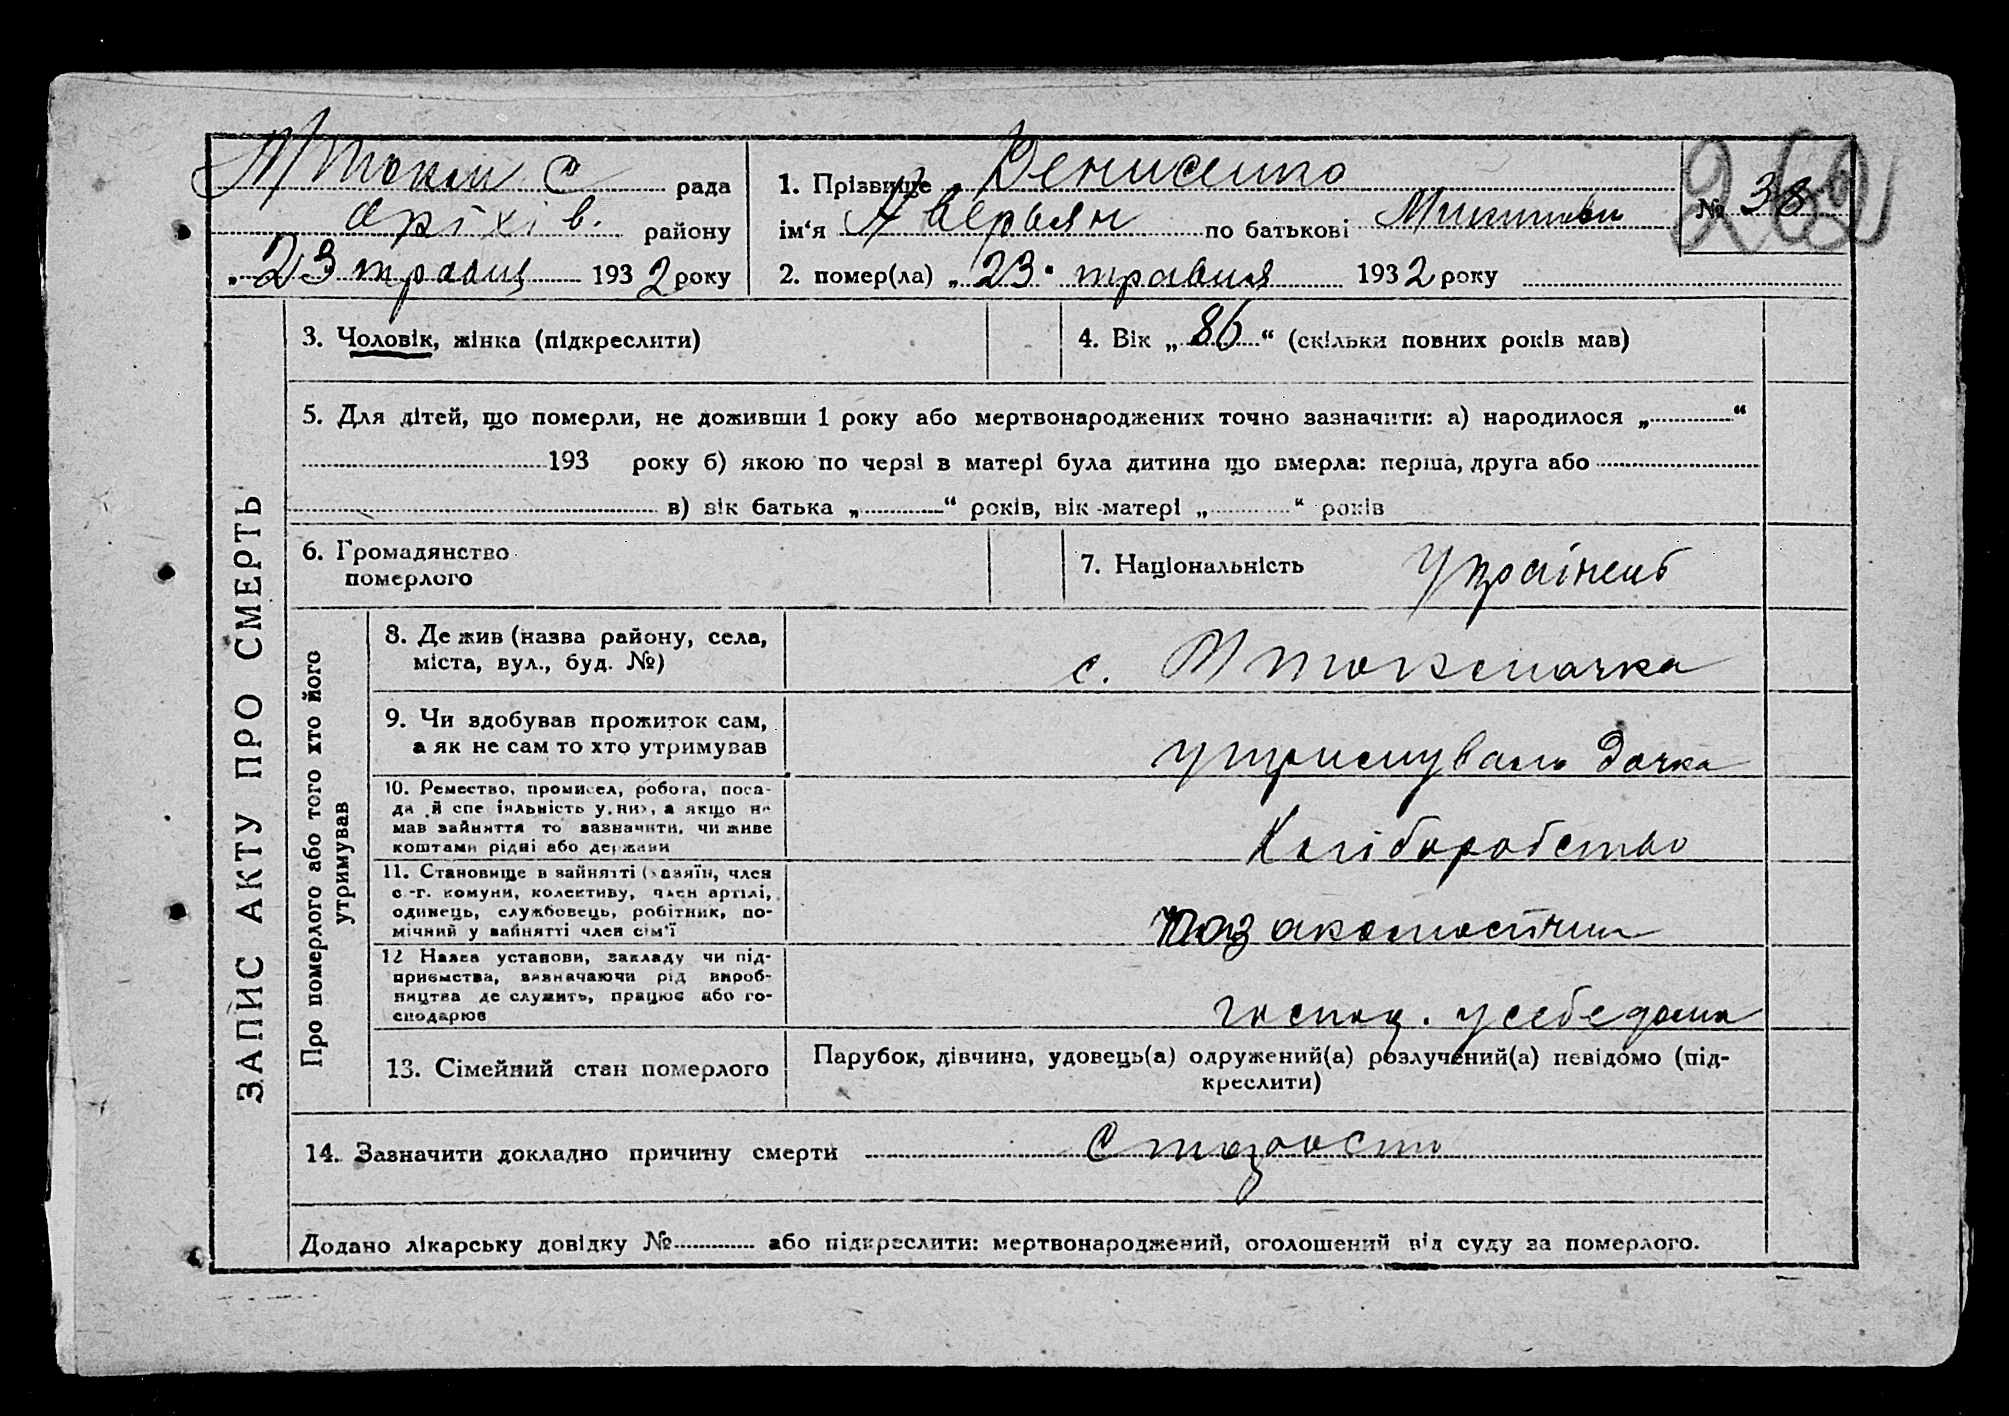 М Токм С рада
Оріхів. району
„23 травня 1932 року
1. Прізвище Денисенко
ім‘я Аверьян по батькові
2. помер(ла) „23" травня 1932 року
№ 38
ЗАПИС АКТУ ПРО СМЕРТЬ
3. Чоловік, жінка (підкреслити)
4. Вік „86“ (скільки повних років мав)
5. Для дітей, що померли, не доживши 1 року або мертвонароджених точно зазначити: а) народилося „ “
193 року б) якою по черзі в матері була дитина що вмерла: перша, друга або
в) вік батька „ “ років, вік матері „ “ років
6. Громадянство
померлого
7. Національність Українець
Про померлого або того хто його
утримував
8. Де жив (назва району, села,
міста, вул., буд. №)
с. М Токмачка
9. Чи здобував прожиток сам,
а як не сам то хто утримував
утримувала дочка
10. Ремество, промисел, робота, поса-
да й спеціяльність у ній, а якщо не
мав зайняття то зазначити, чи живе
коштами рідні або держави
Хліборобство
11. Становище в зайнятті (хазяїн, член
с.-г. комуни, колективу, член артілі,
одинець, службовець, робітник, по-
мічний у зайнятті член сім'ї
12 Назва установи, закладу чи під-
приємства, зазначаючи рід вироб-
ництва де служить, працює або го-
сподарює
господ. у себе дома
13. Сімейний стан померлого
Парубок, дівчина, удовець(а) одружений(а) розлучений(а) невідомо (під-
креслити)
14. Зазначити докладно причину смерти Старость
Додано лікарську довідку № або підкреслити: мертвонароджений, оголошений від суду за померлого.